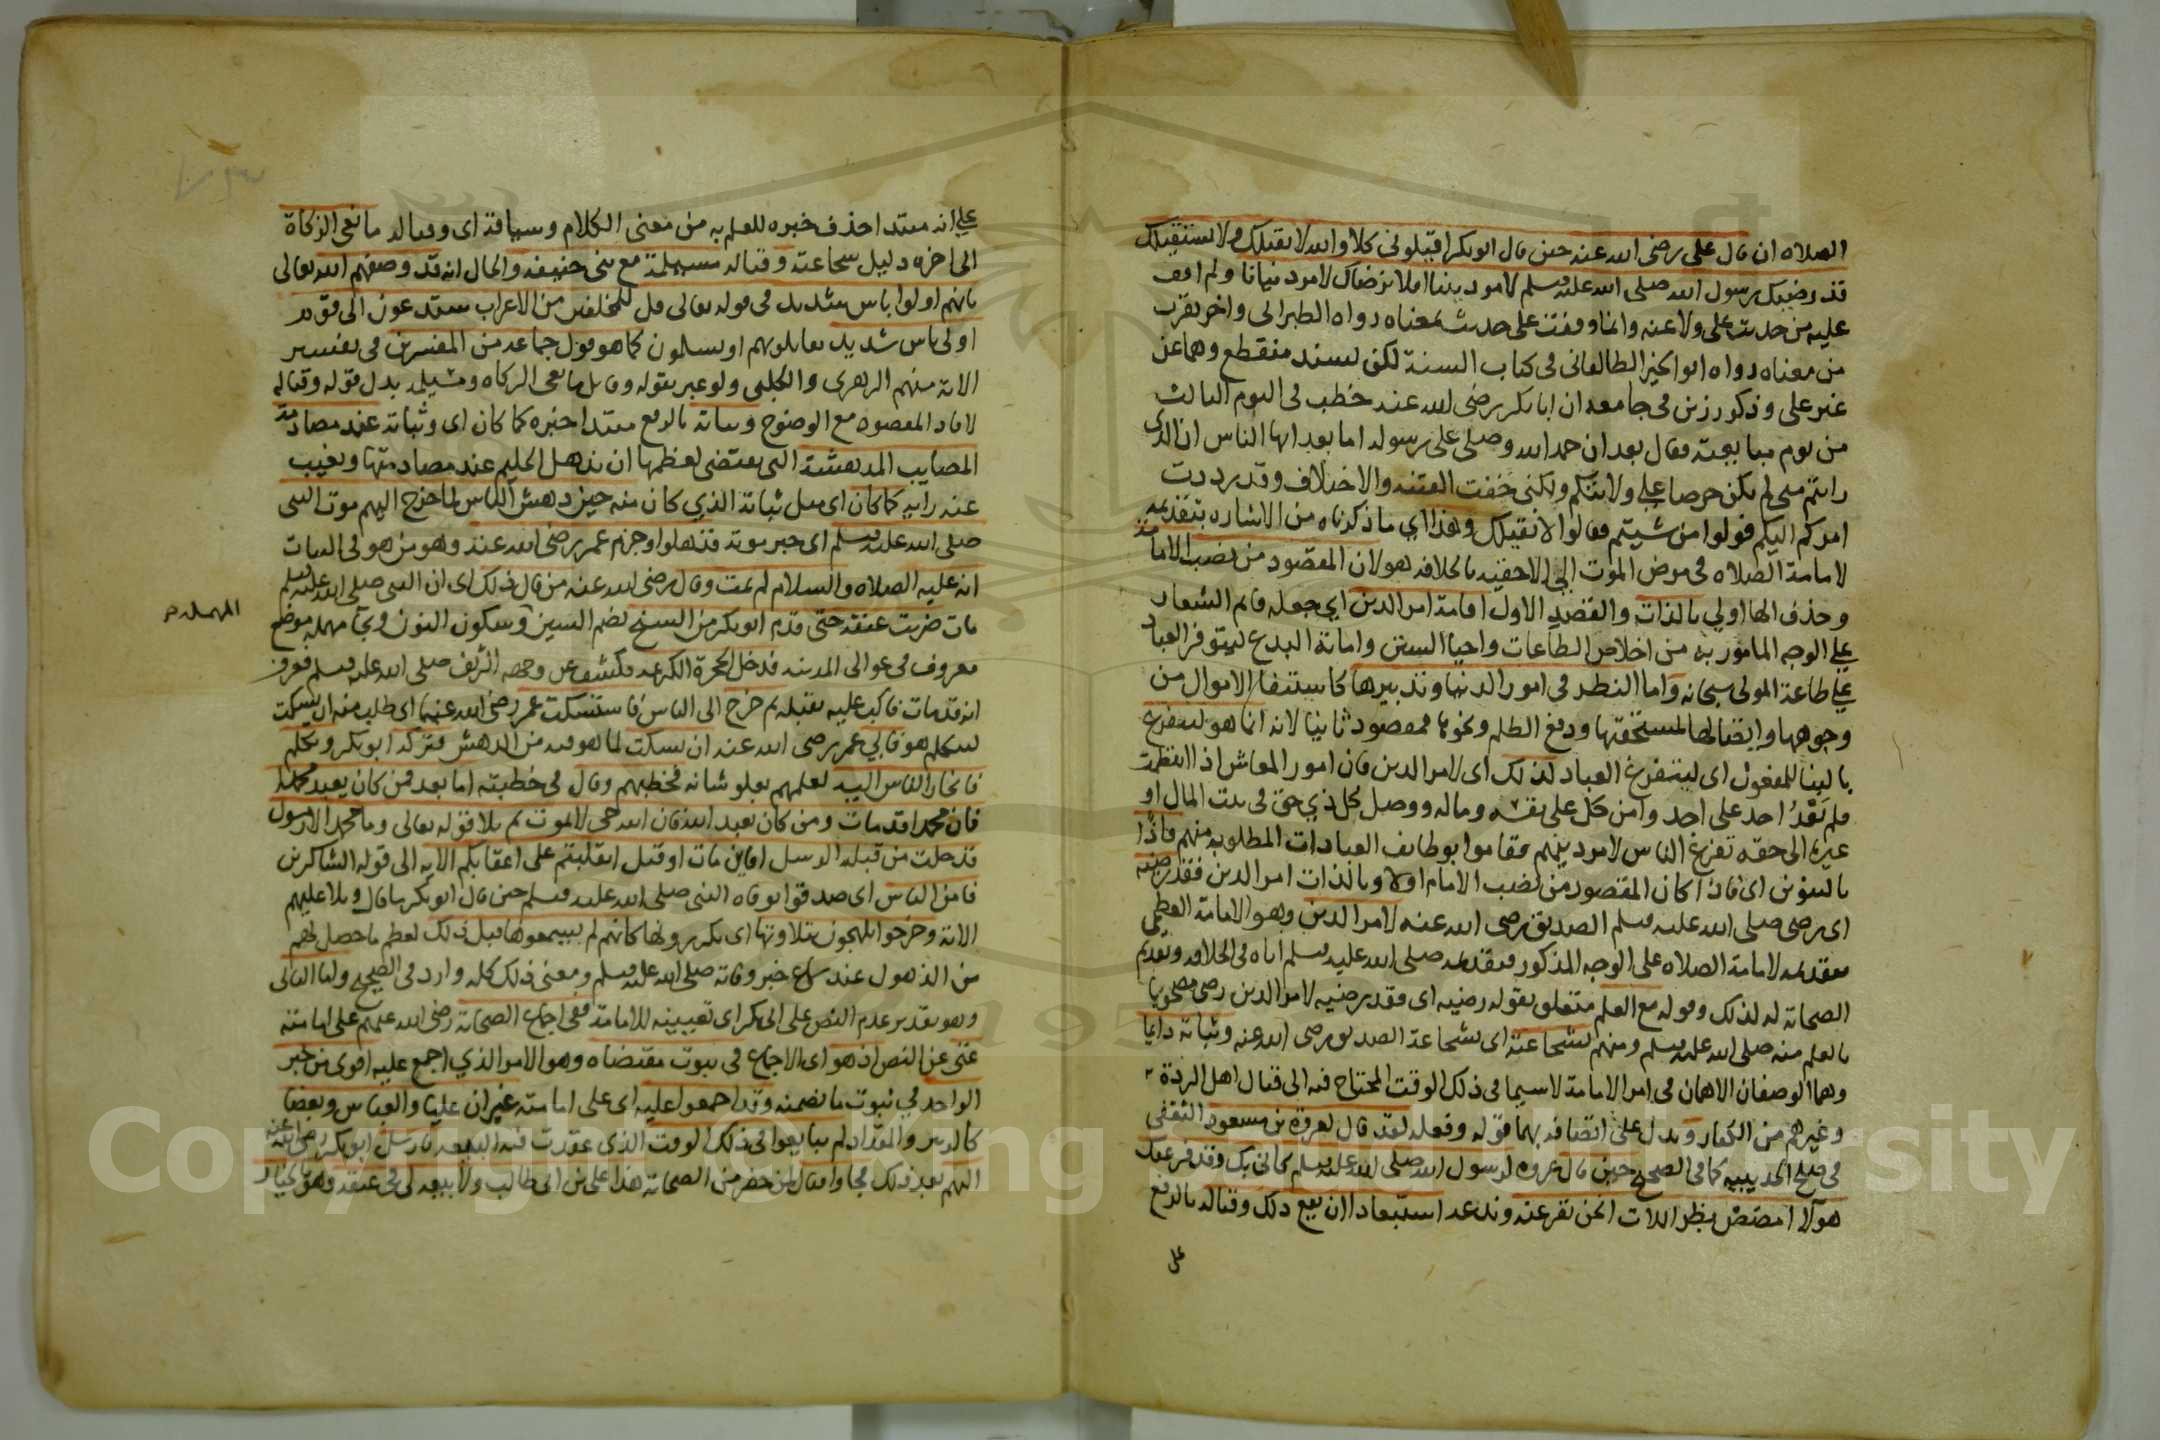 الصلاه ان قال على رضى الله عنه حين قال ابوبكر اقيلونى كلا والله لا نقيلك ولا نستقيلك
قد رضيك رسول الله صلى الله عليه وسلم لامر ديننا افلا نرضاك لامر دنيانا ولم اقف
عليه من حديث على ولا عنه وانما وقفت على حديث بمعناه رواه الطبرانى واخر يقرب
من معناه رواه ابو الخير الطالقانى فى كتاب السنة لكن بسند منقطع وهما عن
غير على وذكر رزين فى جامعه ان ابابكر رضى الله عنه خطب فى اليوم الثالث
من يوم مبايعته فقال بعد ان حمد الله وصلى على رسوله اما بعد ايها الناس ان الذى
رايتم منى لم يكن حرصا على ولايتكم ولكنى خفت الفتنه والاختلاف وقد رددت
امركم اليكم فولوا من شيتم فقالوا لا نقيلك وهذا اى ما ذكرناه من الاشاره بتقديمه
لامامة الصلاه فى مرض الموت الى الاحقيه بالخلافه هو لان المقصود من نصب الامامة
وحذف الها اولى بالذات والقصد الاول اقامة امر الدين اى جعله قايم الشعار
على الوجه المامور به من اخلاص الطاعات واحيا السنن واماتة البدع ليتوفر العباد
على طاعة المولى سبحانه واما النظر فى امور الدنيا وتدبيرها كاستيفا الاموال من
وجوهها وايصالها لمستحقها ودفع الظلم ونحوها فمقصود ثانيا لانه انما هو ليتفرغ
بالبنا للمفعول اى ليتفرغ العباد لذلك اى لامر الدين فان امور المعاش اذا انتظمت
فلم يَعْدُ احد على احد وامن كل على نفسه وماله ووصل كل ذى حق فى بيت المال او
غيره الى حقه تفرغ الناس لامر دينهم فقاموا بوظايف العبادات المطلوبه منهم فاذا
بالتنوين اى فاذا كان المقصود من نصب الامام اولا وبالذات امر الدين فقد رضيه
اى رضى صلى الله عليه وسلم الصديق رضى الله عنه لامر الدين وهو الامامة العظمى
بتقديمه لامامة الصلاه على الوجه المذكور فتقديمه صلى الله عليه وسلم اياه فى الخلافه وتقديم
الصحابة له لذلك وقوله مع العلم متعلق بقوله رضيه اى فقد رضيه لامر الدين رضى مصحوبا
بالعلم منه صلى الله عليه وسلم ومنهم بشجاعته اى بشجاعة الصديق رضى الله عنه وثباته دايما
وهما الوصفان الاهمان فى امر الامامة لاسيما فى ذلك الوقت المحتاج فيه الى قتال اهل الردة
وغيرهم من الكفار ويدل على اتصافه بهما قوله وفعله لقد قال لعروة بن مسعود الثقفى
فى صلح الحديبيه كما فى الصحيح حين قال عروه لرسول الله صلى الله عليه وسلم كانى بك وقد فر عنك
هولا امصص بظر اللات انحن نفر عنه وندعه استبعادا ان يقع ذلك وقتاله بالرفع
على
على انه مبتدا حذف خبره للعلم به من معنى الكلام وسياقه اى وقتاله مانعى الزكاة
الى اخره دليل شجاعته وقتاله مسيلمة مع بنى حنيفه والحال انه قد وصفهم الله تعالى
بانهم اولوا باس شديد فى قوله تعالى قل للمخلفين من الاعراب ستدعون الى قوم
اولى باس شديد تقاتلونهم او يسلمون كما هو قول جماعه من المفسرين فى تفسير
الاية منهم الزهرى والكلبى ولو عبر بقوله وقاتل مانعى الزكاه ومسيلمه بدل قوله وقتاله
لافاد المقصود مع الوضوح وثباته بالرفع مبتدا خبره كما كان اى وثباته عند مصادمة
المصايب المدهشة التى يقتضى لعظمها ان يذهل الحليم عند مصادمتها ويغيب
عنه رايه كما كان اى مثل ثباته الذى كان منه حين دهش الناس لما خرج اليهم موت النبى
صلى الله عليه وسلم اى خبر موته فذهلوا وجزم عمر رضى الله عنه وهو من هو فى الثبات
انه عليه الصلاه والسلام لم يمت وقال رضى الله عنه من قال ذلك اى ان النبى صلى الله عليه وسلم
مات ضربت عنقه حتى قدم ابوبكر من السنح بضم السين وسكون النون وبحا مهمله موضع
المهمله صح
معروف فى عوالى المدينه فدخل الحجرة الكريمه فكشف عن وجهه الشريف صلى الله عليه وسلم فعرف
انه قد مات فاكب عليه يقبله ثم خرج الى الناس فاستسكت عمر رضى الله عنهما اى طلب منه ان يسكت
ليتكلم هو فابى عمر رضى الله عنه ان يسكت لما هو فيه من الدهش فتركه ابوبكر وتكلم
فانحاز الناس اليه لعلمهم بعلو شانه فخطبهم وقال فى خطبته اما بعد فمن كان يعبد محمدا
فان محمدا قد مات ومن كان يعبد الله فان الله حى لا يموت ثم تلا قوله تعالى وما محمد الا رسول
قد خلت من قبله الرسل افاين مات او قتل انقلبتم على اعقابكم الايه الى قوله الشاكرين
فامن الناس اى صدقوا بوفاه النبى صلى الله عليه وسلم حين قال ابوبكر ما قال وتلا عليهم
الاية وخرجوا يلهجون بتلاوتها اى يكررونها كانهم لم يسمعوها قبل ذلك لعظم ما حصل لهم
من الذهول عند سماع خبر وفاته صلى الله عليه وسلم ومعنى ذلك كله وارد فى الصحيح واما الثانى
وهو تقدير عدم النص على ابى بكر اى تعيينه للامامة ففى اجماع الصحابة رضى الله عنهم على امامته
غنى عن النص اذ هو اى الاجماع فى ثبوت مقتضاه وهو الامر الذى اجمع عليه اقوى من خبر
الواحد فى ثبوت ما تضمنه وقد اجمعوا عليه اى على امامته غير ان عليا والعباس وبعضا
كالزبير والمقداد لم يبايعوا فى ذلك الوقت الذى عقدت فيه البيعه فارسل ابوبكر رضى الله عنه
اليهم بعد ذلك فجاوا فقال لمن حضر من الصحابة هذا على بن ابى طالب ولا بيعه لى فى عنقه وهو بالخيار